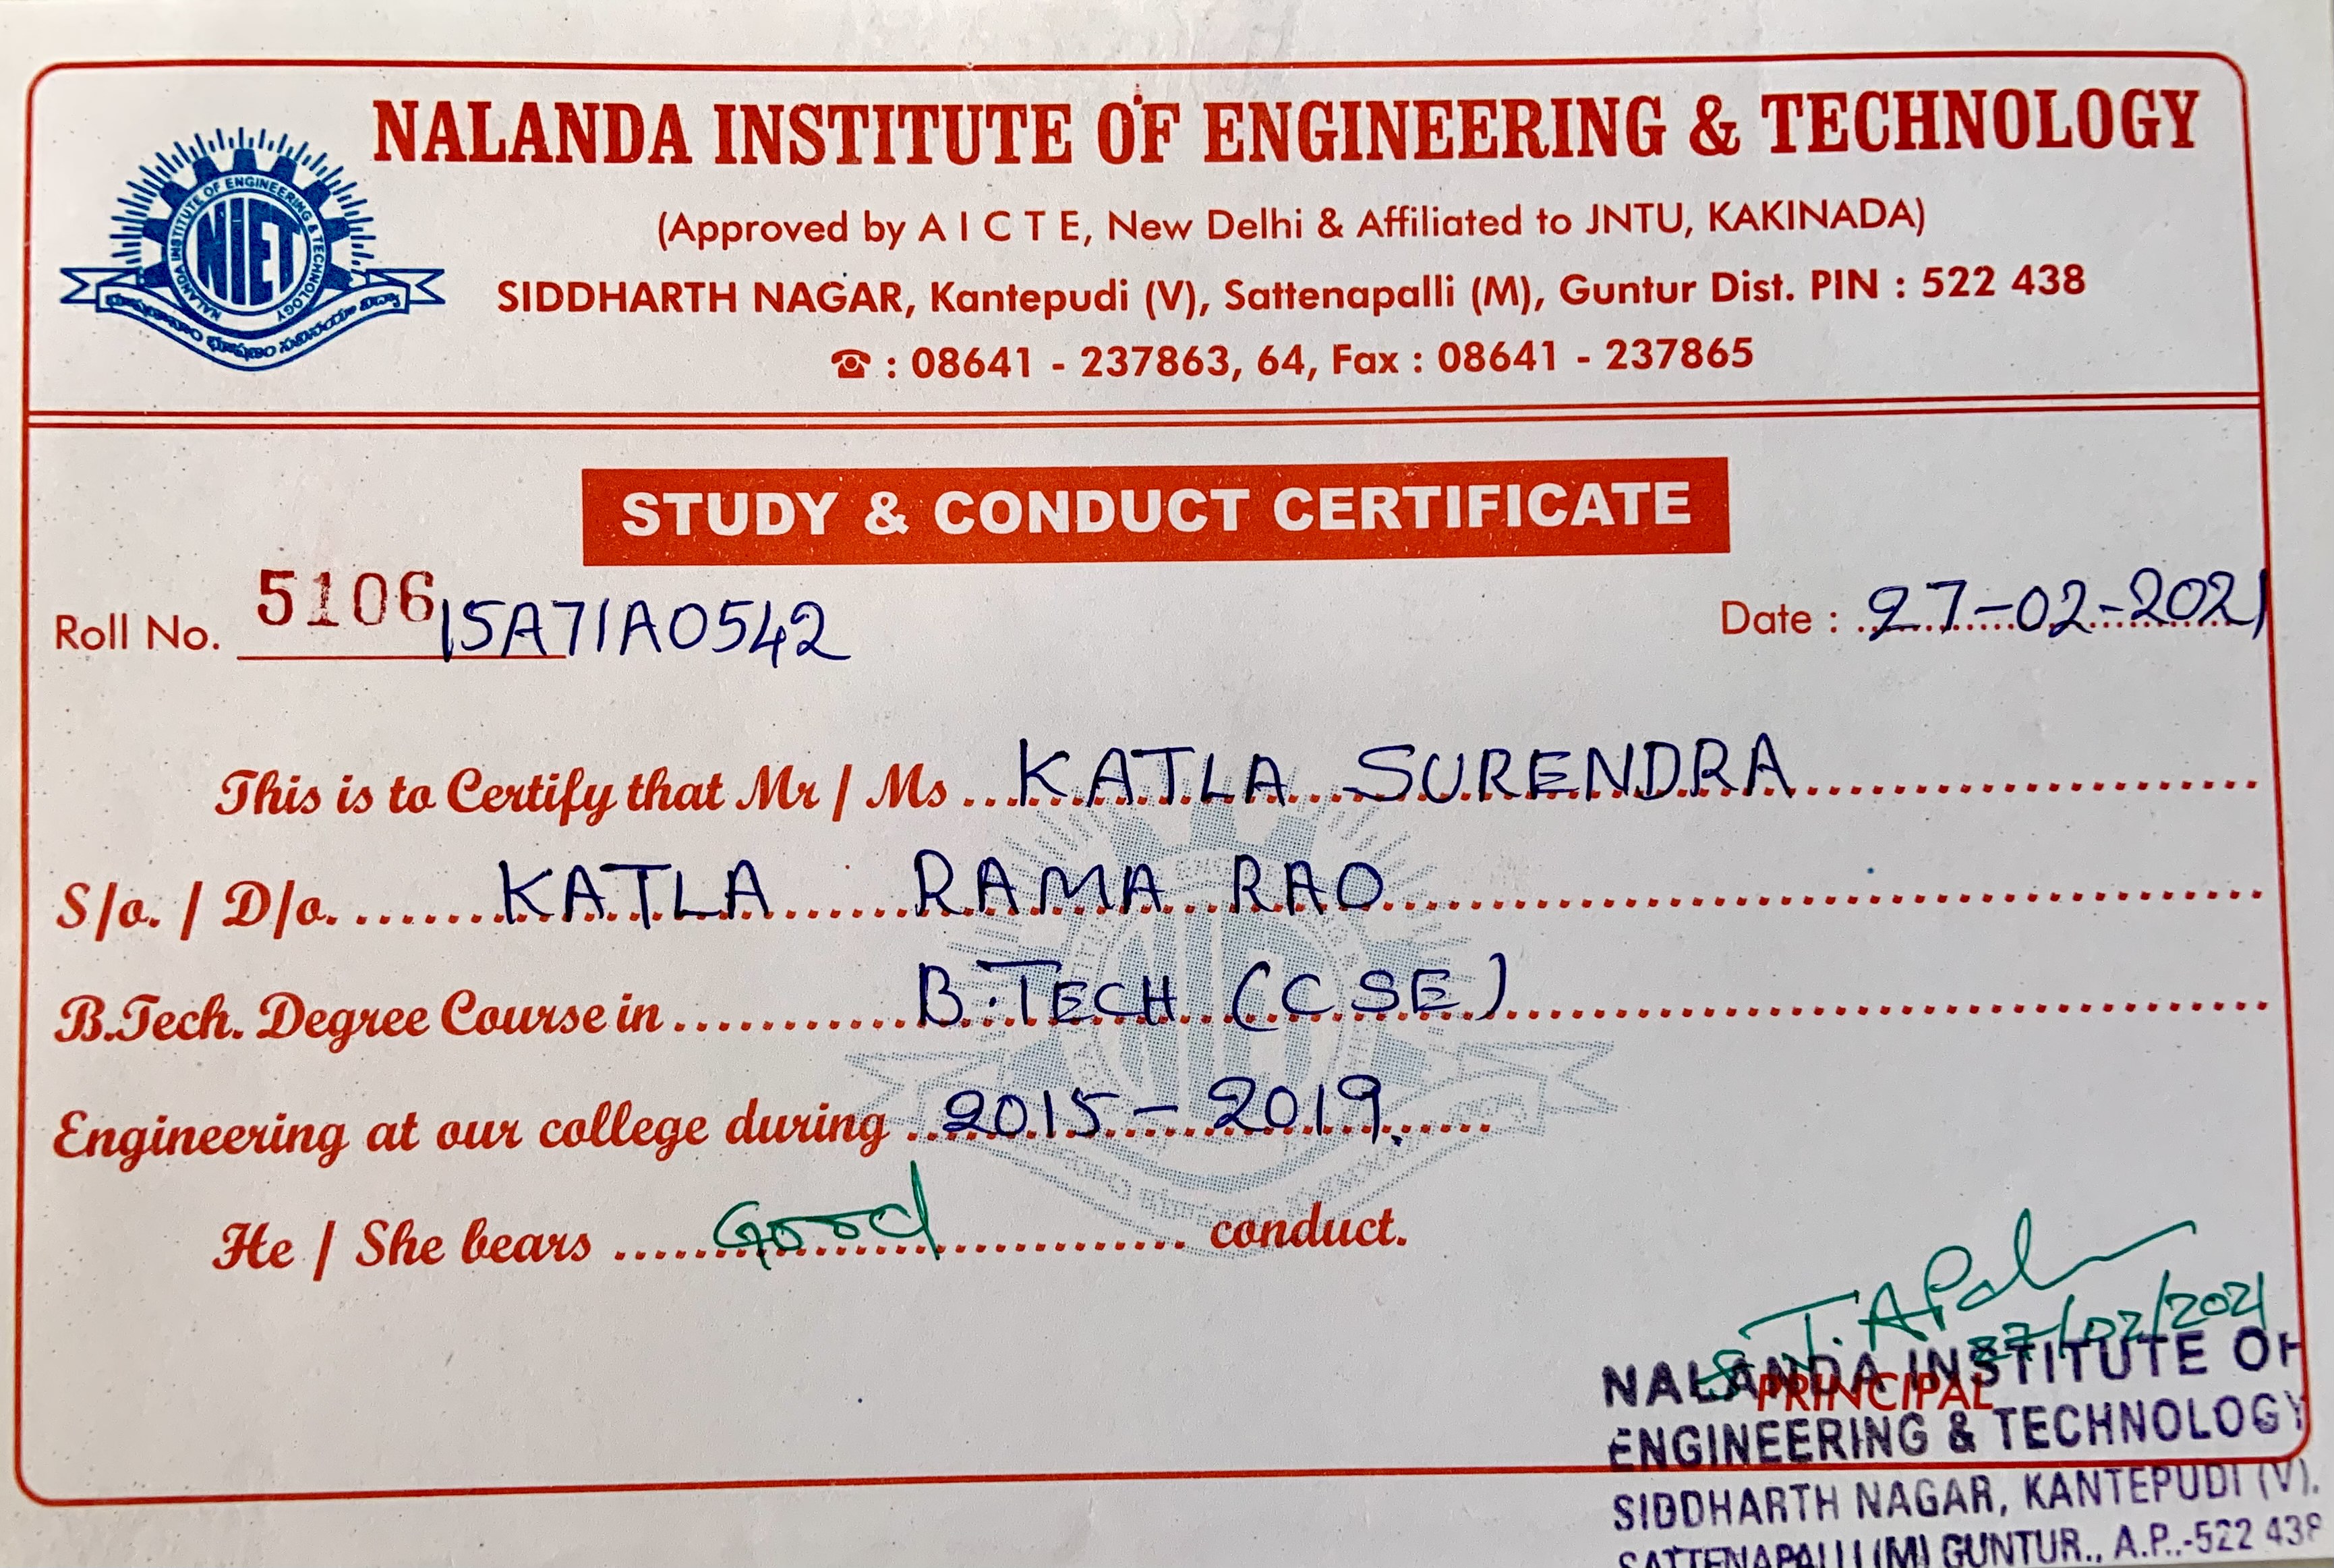 NALANDA INSTITUTE OF ENGINEERING & TECHNOLOGY
NALANDA INSTITUTE OF ENGINEERING & TECHNOLOGY
NIET
(Approved by A I C T E, New Delhi & Affiliated to JNTU, KAKINADA)
SIDDHARTH NAGAR, Kantepudi (V), Sattenapalli (M), Guntur Dist. PIN : 522 438
☎ : 08641 - 237863, 64, Fax : 08641 - 237865
STUDY & CONDUCT CERTIFICATE
Roll No. 5106 15A71A0542 Date : 27-02-2021
This is to Certify that Mr / Ms ... KATLA SURENDRA
S/o. / D/o. KATLA RAMA RAO
B.Tech. Degree Course in B.TECH (CSE)
Engineering at our college during 2015 - 2019.
He / She bears Good conduct.
27/02/2021
PRINCIPAL
NALANDA INSTITUTE OF
ENGINEERING & TECHNOLOGY
SIDDHARTH NAGAR, KANTEPUDI (V).
SATTENAPALLI (M) GUNTUR., A.P.-522 438